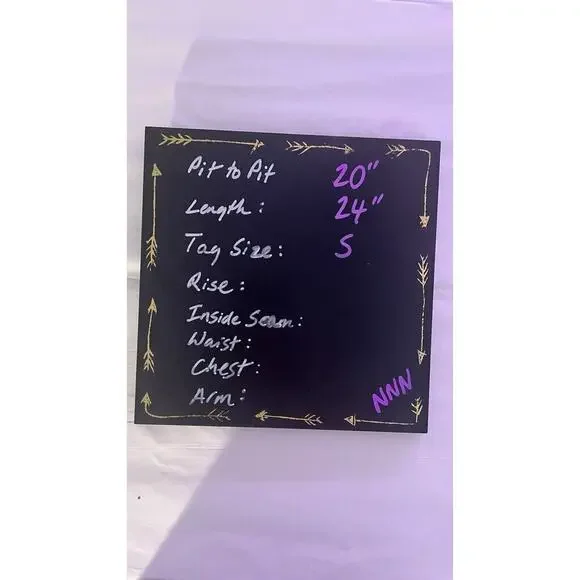 Pit to Pit 20"
Length: 24"
Tag Size: S
Rise:
Inside Seam:
Waist:
Chest:
Arm:
NNN